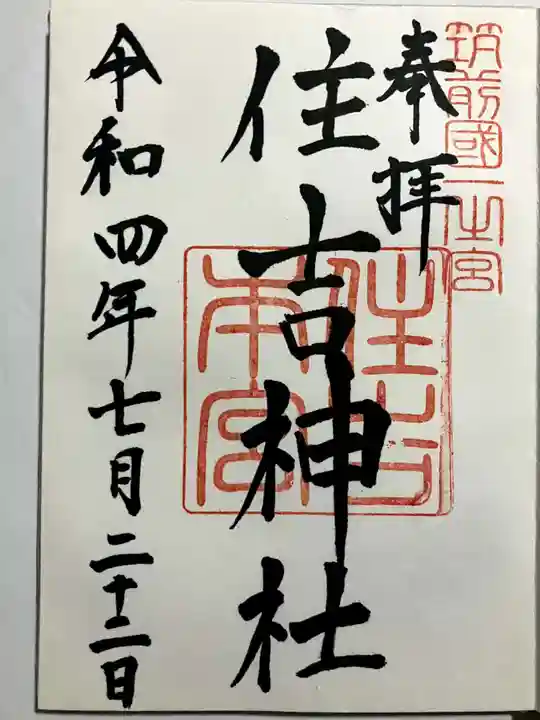 筑前國一之宮
奉拝
住吉神社
住吉
本宮
令和四年七月二十二日